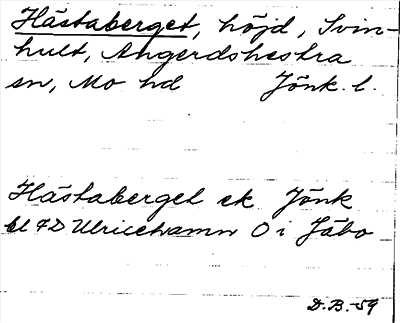 Hästaberget, höjd, Svin-
hult, Angerdshestra
sn, Mo hd Jönk. l.
Hästaberget ek Jönk
bl 7D Ulricehamn O i Jäbo
D.B. -59